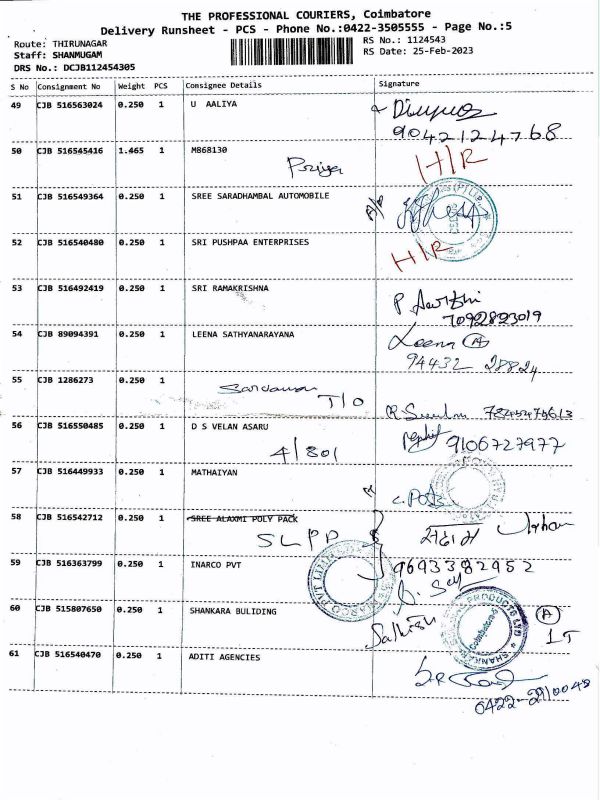 THE PROFESSIONAL COURIERS, Coimbatore
Delivery Runsheet - PCS - Phone No.:0422-3505555 - Page No.:5
Route: THIRUNAGAR
RS No.: 1124543
Staff: SHANMUGAM
RS Date: 25-Feb-2023
DRS No.: DCJB112454305
S No Consignment No Weight PCS Consignee Details Signature
49 CJB 516563024 0.250 1 U AALIYA
9042124768
50 CJB 516545416 1.465 1 M868130
Priya H/R
51 CJB 516549364 0.250 1 SREE SARADHAMBAL AUTOMOBILE
52 CJB 516540480 0.250 1 SRI PUSHPAA ENTERPRISES
H/R
53 CJB 516492419 0.250 1 SRI RAMAKRISHNA
7092823019
54 CJB 89094391 0.250 1 LEENA SATHYANARAYANA
Leena A
94432 28824
55 CJB 1286273 0.250 1
T/O
56 CJB 516550485 0.250 1 D S VELAN ASARU
4/801 9106727977
57 CJB 516449933 0.250 1 MATHAIYAN
58 CJB 516542712 0.250 1 SREE ALAXMI POLY PACK
SLPP
59 CJB 516363799 0.250 1 INARCO PVT
9693382952
60 CJB 515807650 0.250 1 SHANKARA BULIDING
Sathish A
1T
61 CJB 516540470 0.250 1 ADITI AGENCIES
0422-2910048